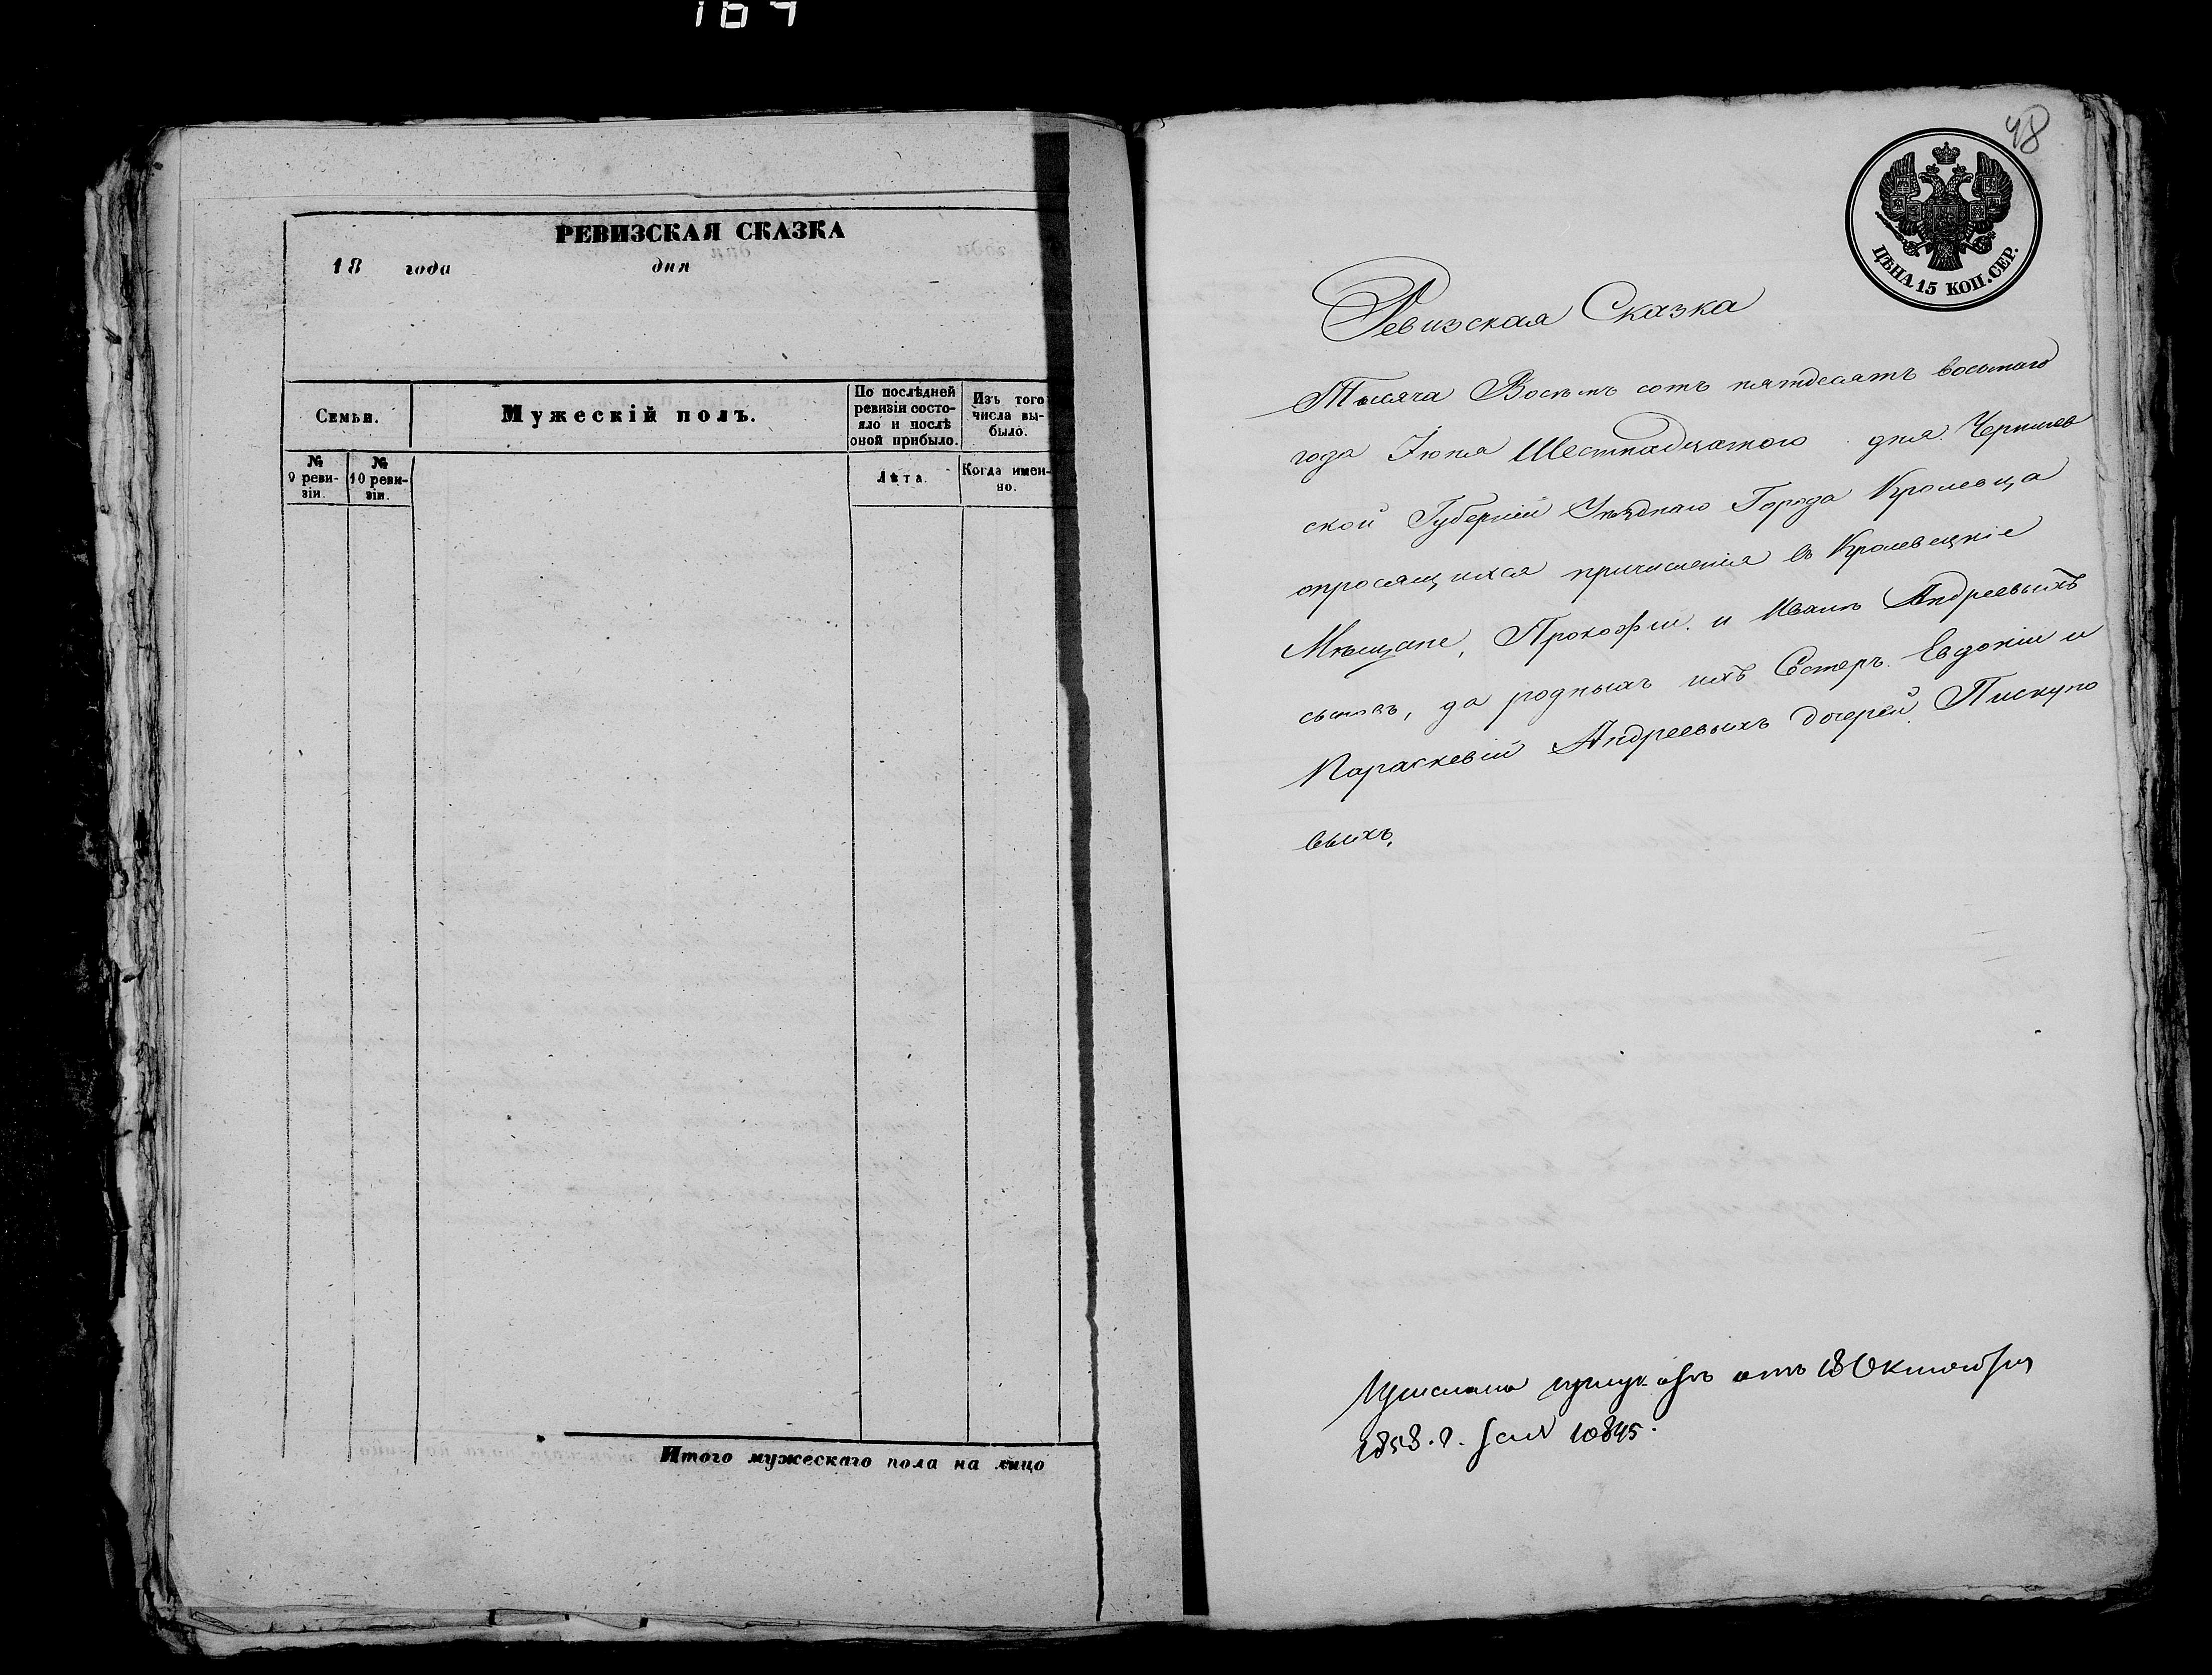 164
РЕВИЗСКАЯ СКАЗКА
18 года дня
Семьи.
Мужескій полъ.
По послѣдней ревизіи состояло и послѣ оной прибыло.
Изъ того числа выбыло.
№ 9 ревизіи.
№ 10 ревизіи.
Лѣта.
Когда именно.
Итого мужескаго пола на лицо
48
ЦѢНА 15 КОП. СЕР.
Ревизская Сказка
Тысяча Восемь сотъ пятдесятъ восьмаго
года Іюня Шестнадцатого дня. Чернигов
ской Губерніи Уѣзднаго Города Кролевца
опросящихся причисленія въ Кролевецкіе
Мѣщане, Прокофіи. и Иванѣ Андреевыхъ
сыновъ, да родныхъ ихъ Сестеръ. Евдокіи и
Параскевіи Андреевыхъ дочерей. Пискуно
выхъ.
отъ 18 Октября
1858. г. за № 10845.